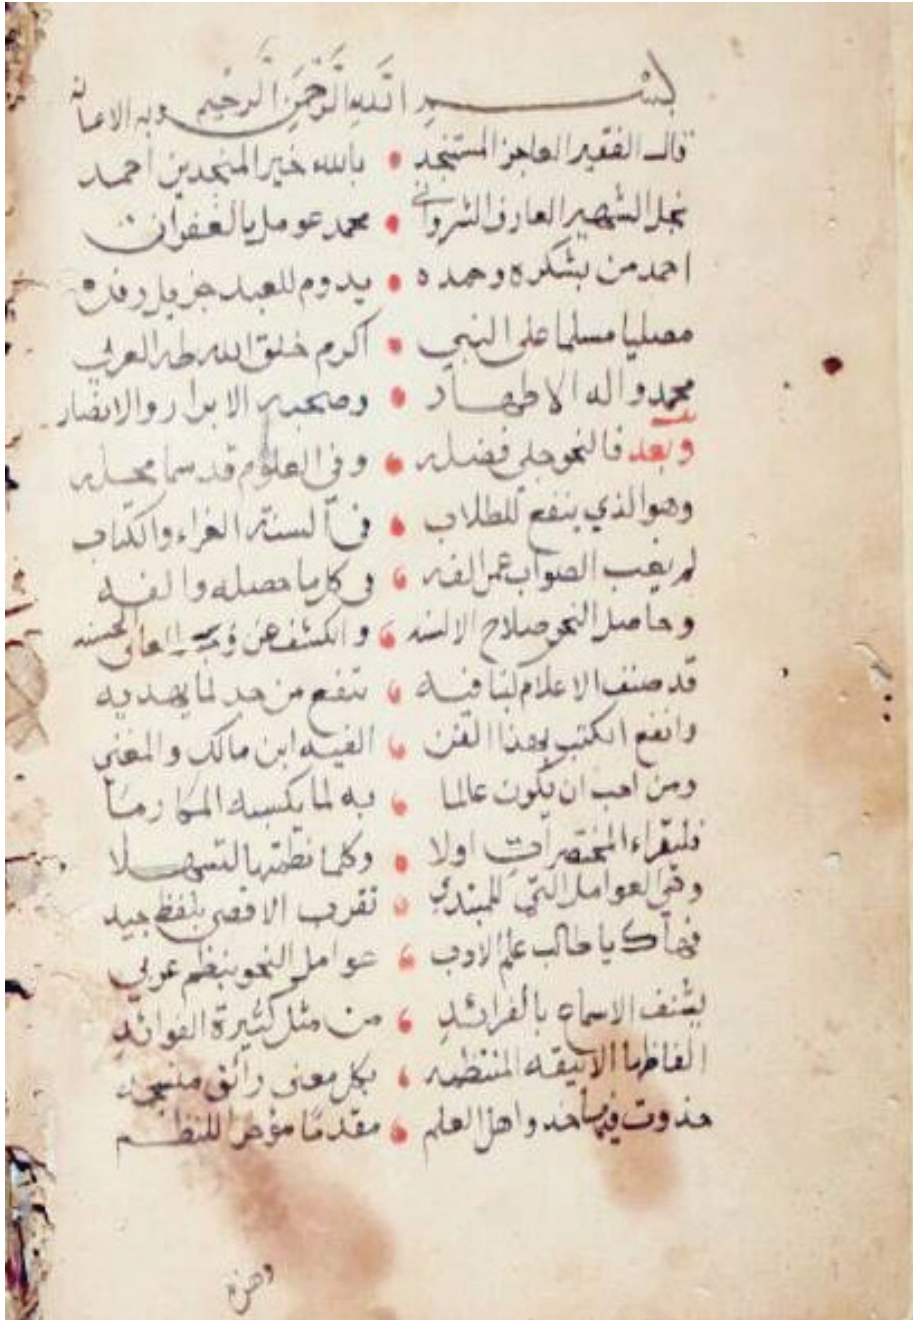 بسم الله الرحمن الرحيم وبه الاعانة
قال الفقير العاجز المستنجد • بالله خير المنجدين احمد
نجل الشهير العارف الشرواني • محمد عومل بالغفران
احمد من بشكره وحمده • يدوم للعبد جزيل رفده
مصليا مسلما على النبي • اكرم خلق الله طه العربي
محمد واله الاطهار • وصحبه الابرار والانصار
وبعد فالنحو جلي فضله • وفي العلوم قد سما محله
وهو الذي ينفع للطلاب • في السنة الغراء والكتاب
لم يغب الصواب عمن الفه • في كل ما حصله والفه
وحاصل النحو صلاح الالسنه • والكشف عن وجه المعاني الحسنه
قد صنف الاعلام كتبا فيه • تنفع من جد لما يهديه
وانفع الكتب بهذا الفن • الفية ابن مالك والمغني
ومن احب ان يكون عالما • به لما يكسبه المكارما
فليقراء المختصرات اولا • وكلما نظمتها لتسهلا
وهي العوامل التي للمبتدي • تقرب الاقصى بلفظ جيد
فهاك يا طالب علم الادب • عوامل النحو بنظم عربي
يشنف الاسماع بالفرائد • من مثل كثيرة الفوائد
الفاظها الانيقه المنتظمه • بكل معنى رائق منسجمه
حذوت فيها حذو اهل العلم • مقدما مؤخرا للنظم
وهذه